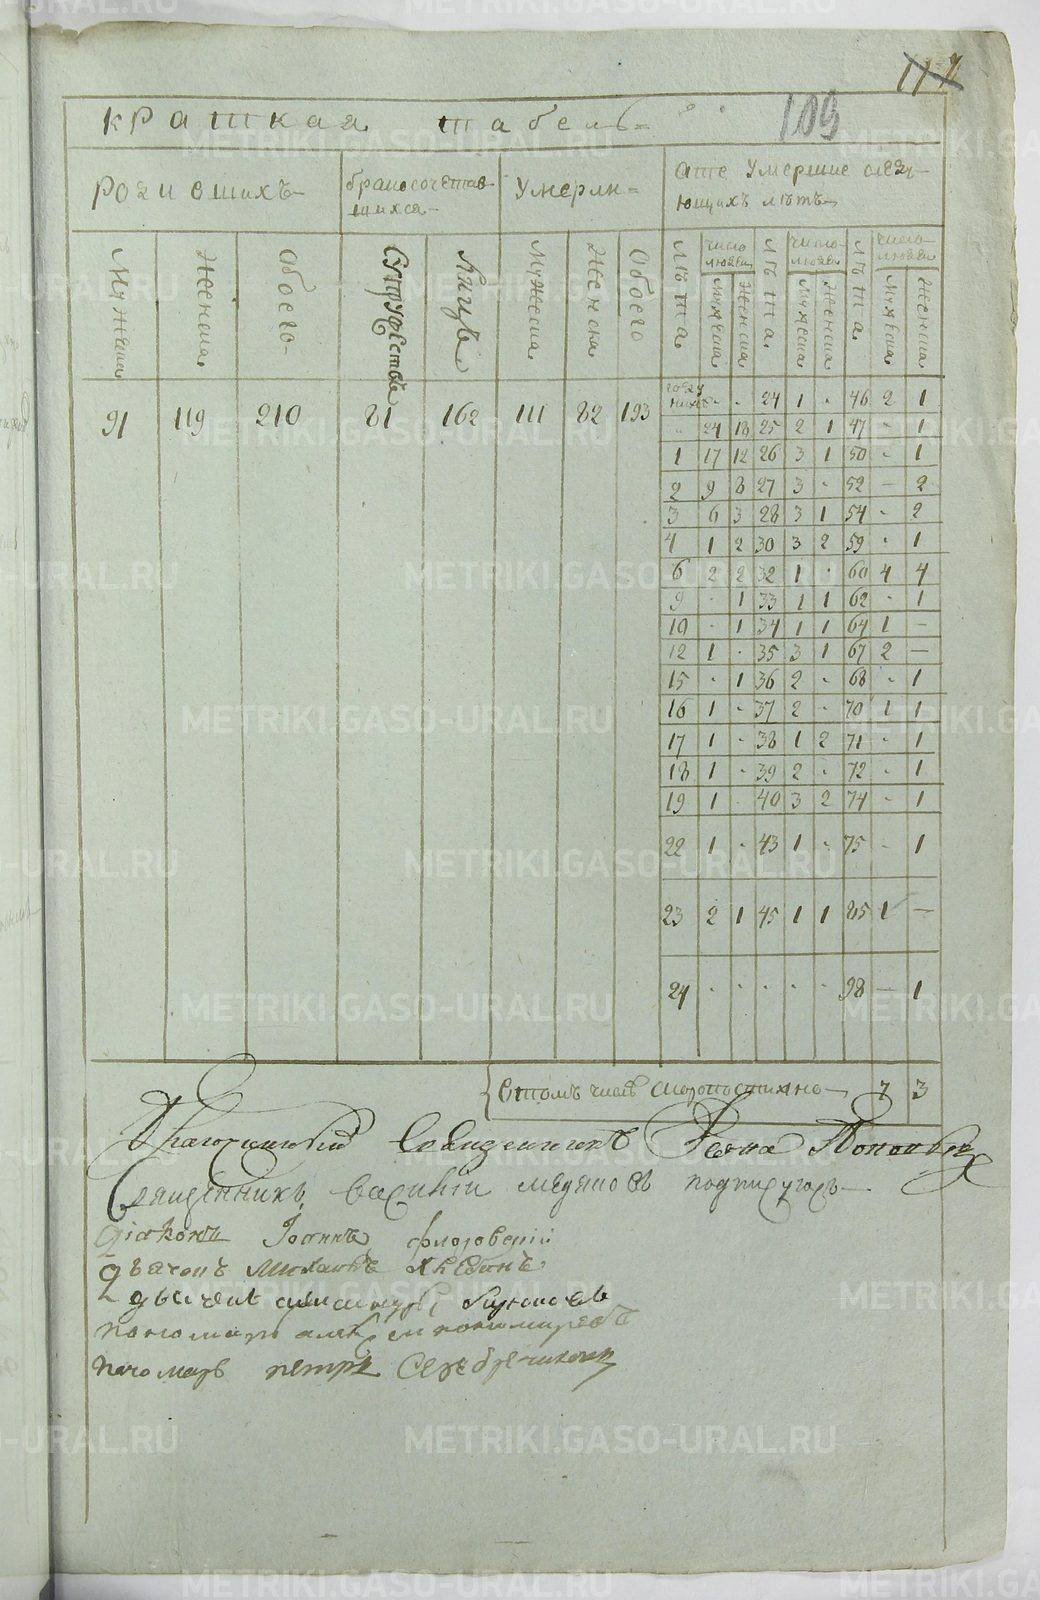 117
109
краткая табель
родившихъ
бракосочетав
шихся
умерли
а те умершие следу
ющихъ летъ
Мужеска
Женска
Обоего
Супружествъ
Лицъ
Мужеска
Женска
Обоего
Лета
число людей
Мужеска
Женска
Лета
число людей
Мужеска
Женска
Лета
число людей
Мужеска
Женска
91 119 210 81 162 111 82 193
- - 24 1 - 46 2 1
- 24 18 25 2 1 47 - 1
1 17 12 26 3 1 50 - 1
2 9 8 27 3 - 52 - 2
3 6 3 28 3 1 54 - 2
4 1 2 30 3 2 59 - 1
6 2 2 32 1 - 60 4 4
9 - 1 33 1 1 62 - 1
10 - 1 34 1 1 64 1 -
12 1 - 35 3 1 67 2 -
15 - 1 36 2 - 68 - 1
16 1 - 37 2 - 70 1 1
17 1 - 38 1 2 71 - 1
18 1 - 39 2 - 72 - 1
19 1 - 40 3 2 74 - 1
22 1 - 43 1 - 75 - 1
23 2 1 45 1 1 85 1 -
24 - - - - - 98 - 1
Втомъ числе скоропостижно 7 3
Благочинный Священникъ Иоанъ Поповъ
Священникъ Василий подписуюсь
Диаконъ Иоаннъ Флоровский
Дьячокъ Михаилъ
Дьячекъ
пономарь
пономарь петръ Серебренниковъ
METRIKI.GASO-URAL.RU